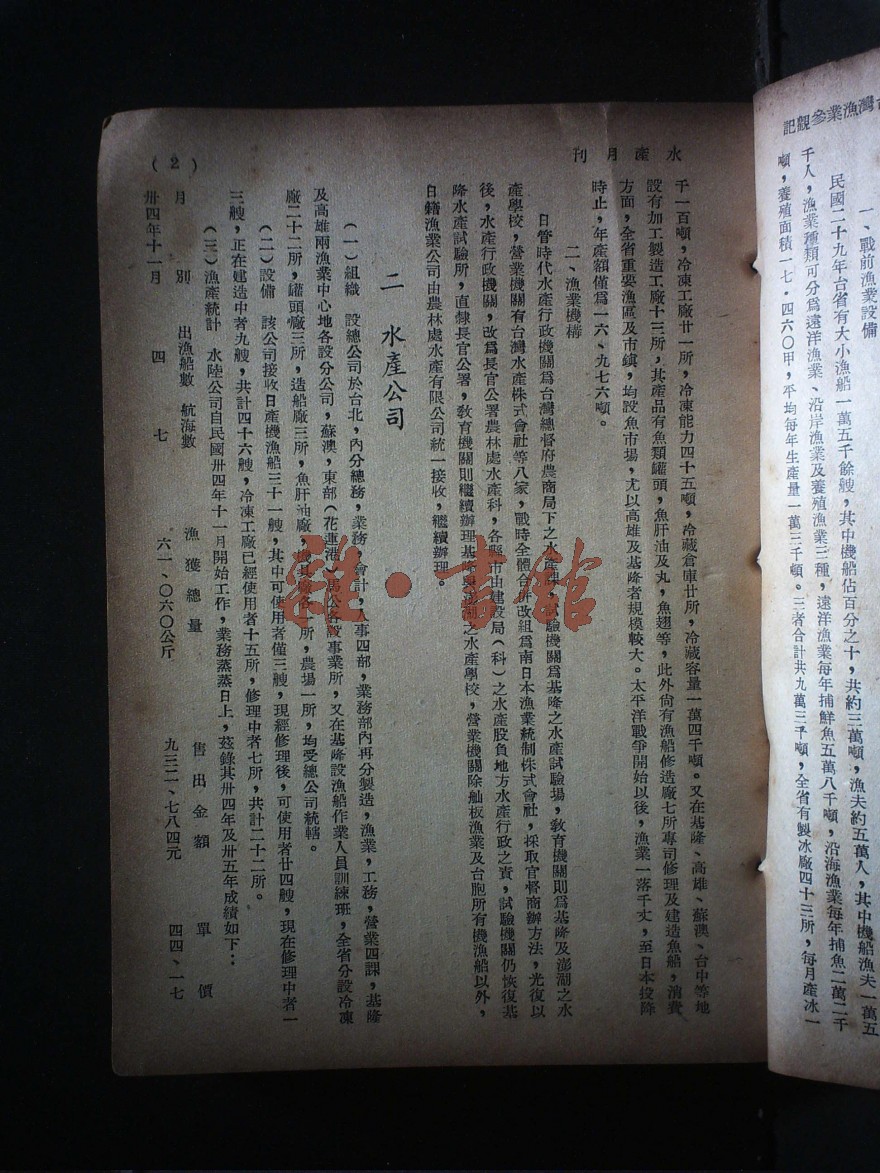 台灣漁業參觀記
一、戰前漁業設備
民國二十九年台省有大小漁船一萬五千餘艘，其中機船佔百分之十，共約三萬噸，漁夫約五萬人，其中機船漁夫一萬五
千人，漁業種類可分爲遠洋漁業、沿岸漁業及養殖漁業三種，遠洋漁業每年捕鮮魚五萬八千噸，沿海漁業每年捕魚二萬二千
噸，養殖面積一七·四六〇甲，平均每年生產量一萬三千噸。三者合計共九萬三千噸，全省有製冰廠四十三所，每月產冰一
水產月刊
千一百噸，冷凍工廠廿一所，冷凍能力四十五噸，冷藏倉庫廿所，冷藏容量一萬四千噸。又在基隆、高雄、蘇澳、台中等地
設有加工製造工廠十三所，其產品有魚類罐頭，魚肝油及丸，魚翅等，此外尙有漁船修造廠七所專司修理及建造魚船，消費
方面，全省重要漁區及市鎮，均設魚市場，尤以高雄及基隆者規模較大。太平洋戰爭開始以後，漁業一落千丈，至日本投降
時止，年產額僅爲一六、九七六噸。
二、漁業機構
日管時代水產行政機關爲台灣總督府農商局下之水產課，試驗機關爲基隆之水產試驗場，敎育機關則爲基隆及澎湖之水
產學校，營業機關有台灣水產株式會社等八家，戰時全體合併改組爲南日本漁業統制株式會社，採取官督商辦方法，光復以
後，水產行政機關，改爲長官公署農林處水產科，各縣市由建設局（科）之水產股負地方水產行政之責，試驗機關仍恢復基
隆水產試驗所，直隸長官公署，敎育機關則繼續辦理基隆與澎湖之水產學校，營業機關除舢板漁業及台胞所有機漁船以外，
日籍漁業公司由農林處水產有限公司統一接收，繼續辦理。
二 水產公司
（一）組織 設總公司於台北，內分總務，業務，會計，人事四部，業務部內再分製造，漁業，工務，營業四課，基隆
及高雄兩漁業中心地各設分公司，蘇澳，東部（花蓮港）馬公各設事業所，又在基隆設漁船作業人員訓練班，全省分設冷凍
廠二十二所，罐頭廠三所，造船廠三所，魚肝油廠，漁具廠各一所，農場一所，均受總公司統轄。
（二）設備 該公司接收日產機漁船三十一艘，其中可使用者僅三艘，現經修理後，可使用者廿四艘，現在修理中者一
三艘，正在建造中者九艘，共計四十六艘，冷凍工廠已經使用者十五所，修理中者七所，共計二十二所。
（三）漁產統計 水陸公司自民國卅四年十一月開始工作，業務蒸蒸日上，茲錄其卅四年及卅五年成績如下：
月別 出漁船數 航海數 漁獲總量 售出金額 單價
卅四年十一月 四 七 六一、〇六〇公斤 九三二、七八四元 四四、一七
（2）
雜·書館